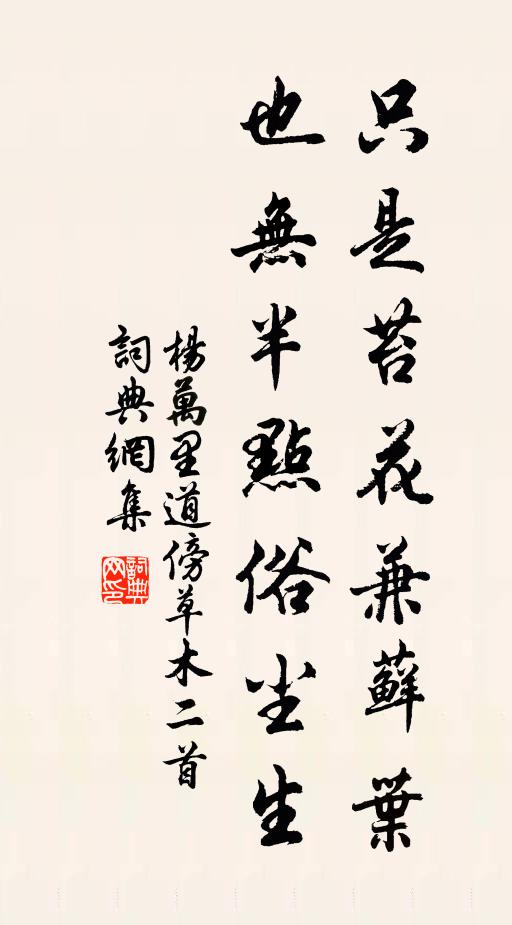 只是苔花兼蘚葉
也無半點俗尘生
楊萬里道傍草木二首
詞典網集
詞典网印